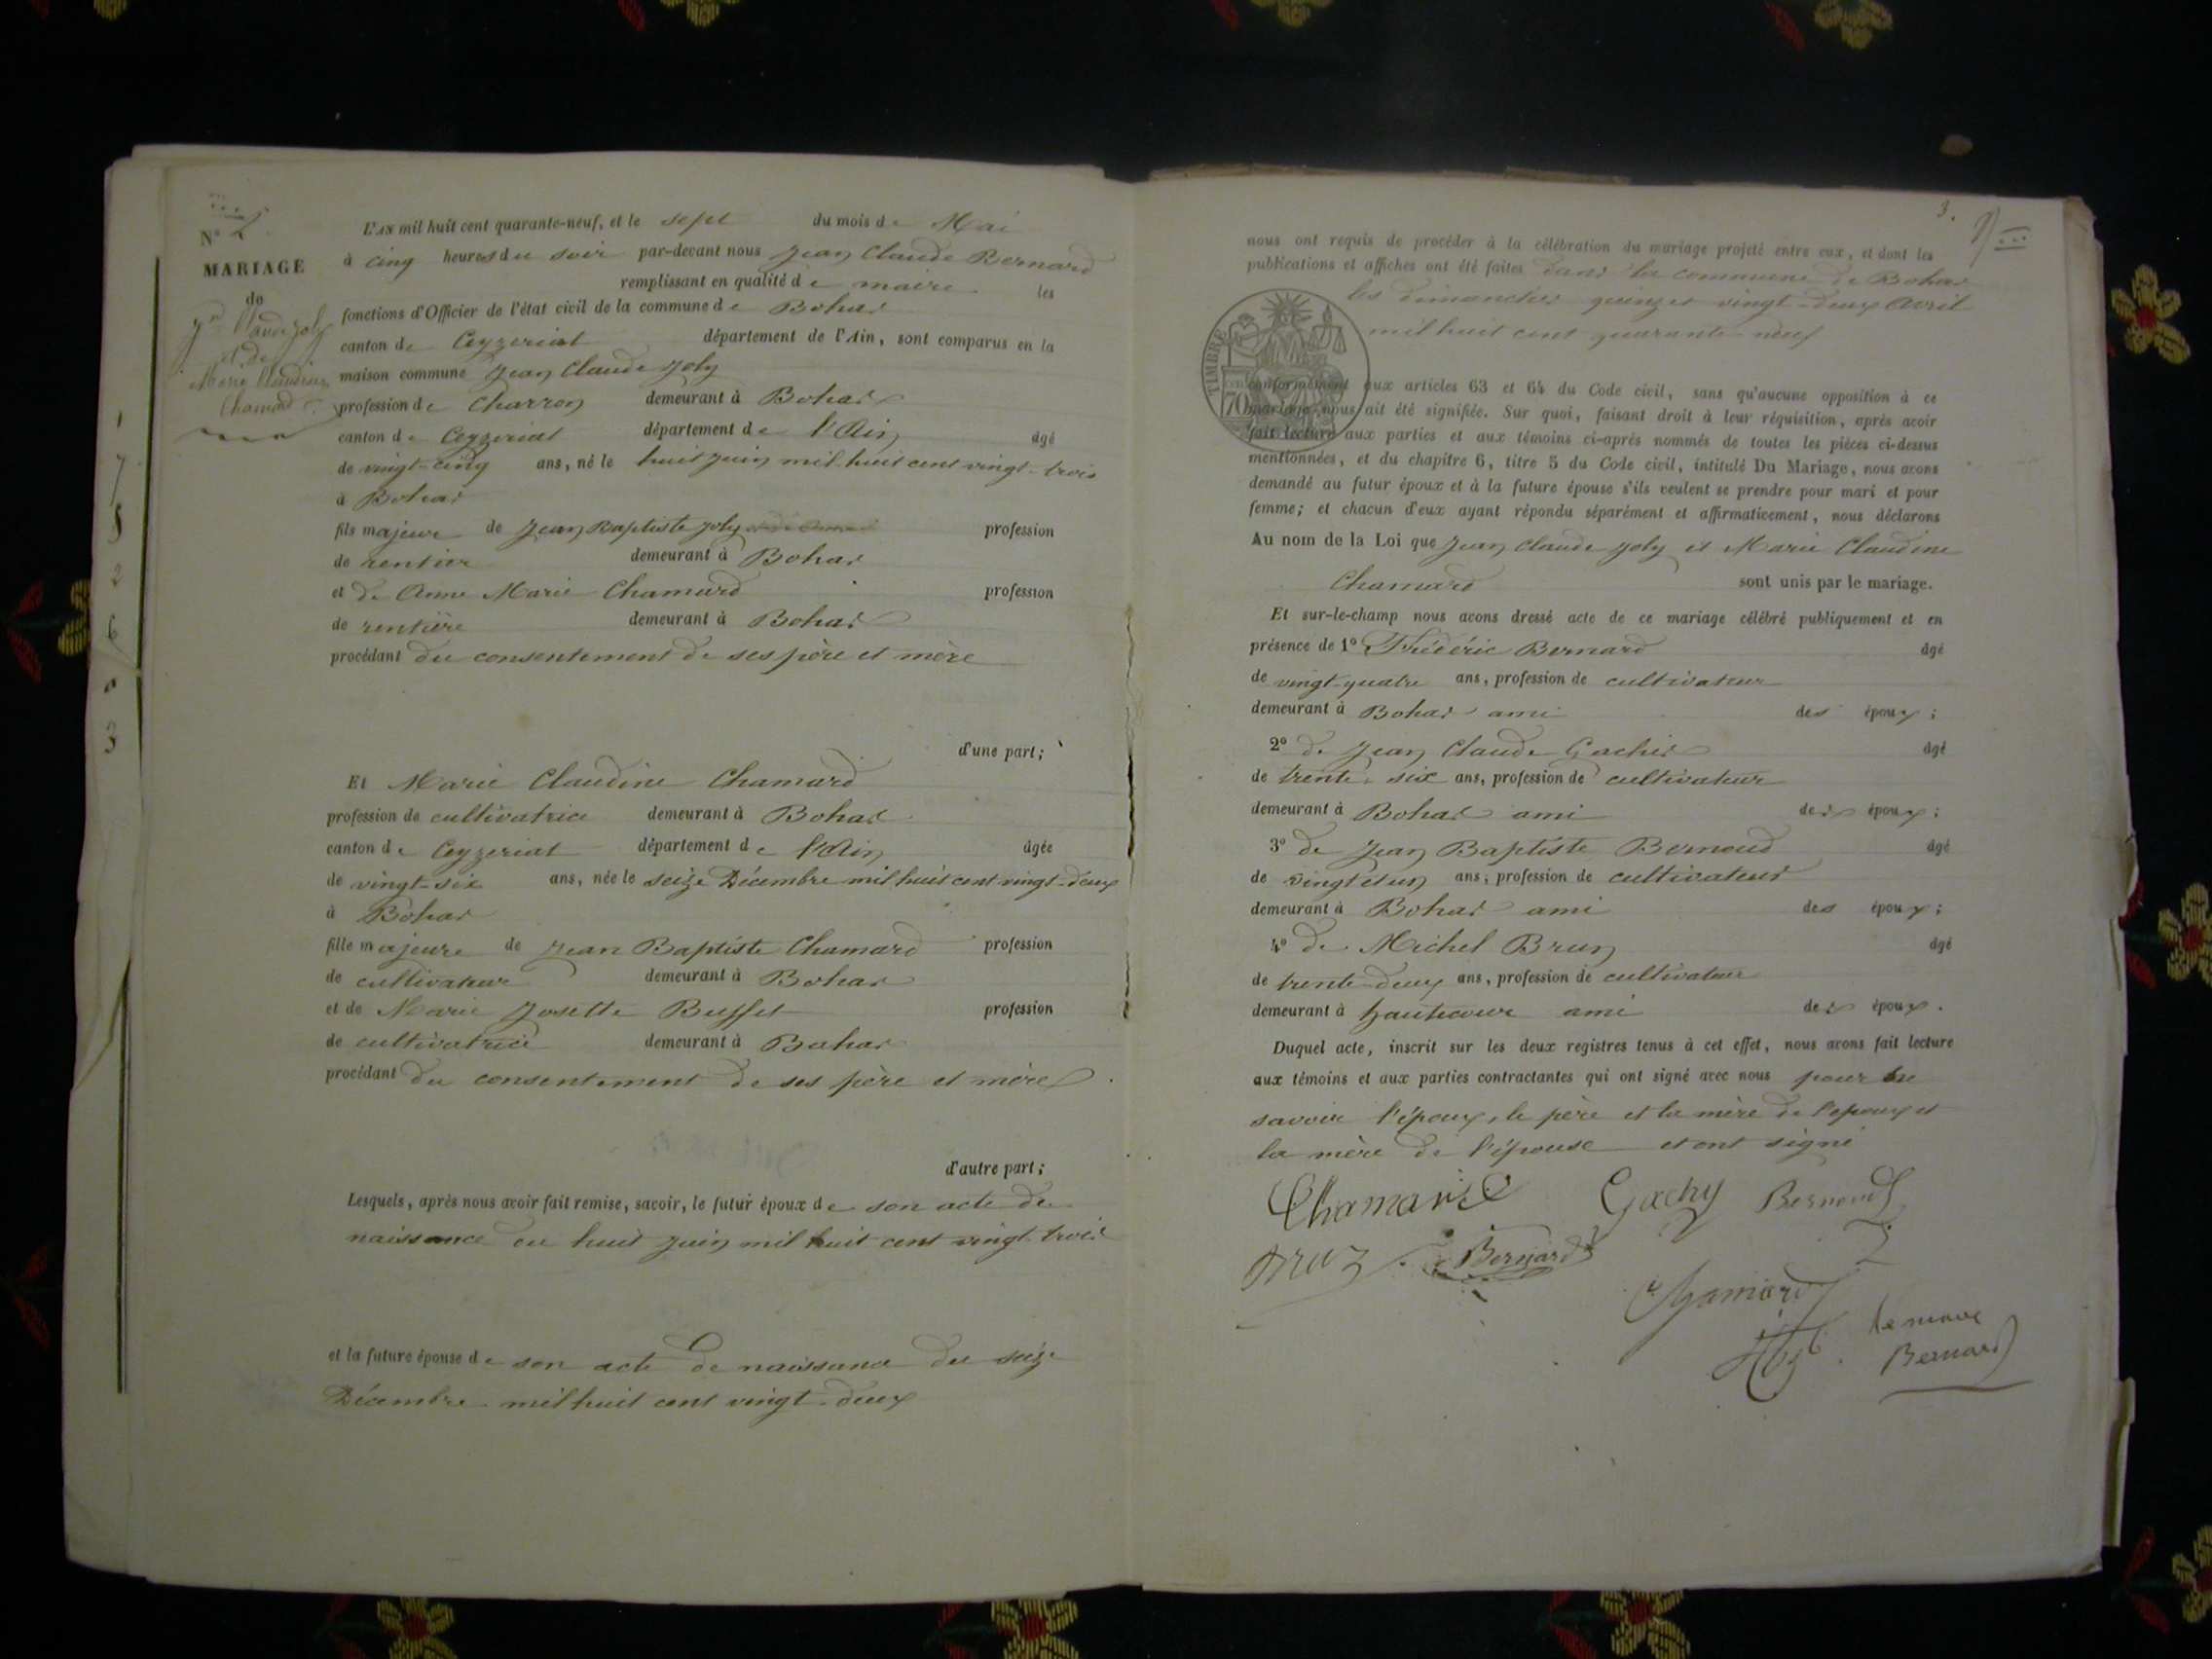 N°
MARIAGE
de
Jn Claude Joly
et de
Marie Claudine
Chamard
1
7
8
2
6
0
3
L'AN mil huit cent quarante-neuf, et le sept du mois de Mai
à cinq heures du soir par-devant nous Jean Claude Bernard
remplissant en qualité de maire les
fonctions d'Officier de l'état civil de la commune de Bohas
canton de Ceyzeriat département de l'Ain, sont comparus en la
maison commune Jean Claude Joly
profession de Charron demeurant à Bohas
canton de Ceyzeriat département de l'Ain âgé
de vingt-cinq ans, né le huit Juin mil huit cent vingt-trois
à Bohas
fils majeur de Jean Baptiste Joly profession
de rentier demeurant à Bohas
et de Anne Marie Chamard profession
de rentière demeurant à Bohas
procédant du consentement de ses père et mère
d'une part;
Et Marie Claudine Chamard
profession de cultivatrice demeurant à Bohas
canton de Ceyzeriat département de l'Ain âgée
de vingt-six ans, née le seize Décembre mil huit cent vingt-deux
à Bohas
fille majeure de Jean Baptiste Chamard profession
de cultivateur demeurant à Bohas
et de Marie Josette Buffet profession
de cultivatrice demeurant à Bohas
procédant du consentement de ses père et mère
d'autre part;
Lesquels, après nous avoir fait remise, savoir, le futur époux de son acte de
naissance du huit Juin mil huit cent vingt-trois
et la future épouse de son acte de naissance du seize
Décembre mil huit cent vingt-deux
3.
nous ont requis de procéder à la célébration du mariage projeté entre eux, et dont les
publications et affiches ont été faites dans la commune de Bohas
les dimanches quinze et vingt-deux Avril
mil huit cent quarante-neuf
TIMBRE
70
conformément aux articles 63 et 64 du Code civil, sans qu'aucune opposition à ce
mariage nous ait été signifiée. Sur quoi, faisant droit à leur réquisition, après avoir
fait lecture aux parties et aux témoins ci-après nommés de toutes les pièces ci-dessus
mentionnées, et du chapitre 6, titre 5 du Code civil, intitulé Du Mariage, nous avons
demandé au futur époux et à la future épouse s'ils veulent se prendre pour mari et pour
femme; et chacun d'eux ayant répondu séparément et affirmativement, nous déclarons
Au nom de la Loi que Jean Claude Joly et Marie Claudine
Chamard sont unis par le mariage.
Et sur-le-champ nous avons dressé acte de ce mariage célébré publiquement et en
présence de 1° Frédéric Bernard âgé
de vingt-quatre ans, profession de cultivateur
demeurant à Bohas ami des époux;
2° de Jean Claude Gachis âgé
de trente-six ans, profession de cultivateur
demeurant à Bohas ami des époux;
3° de Jean Baptiste Bernoud âgé
de vingt et un ans, profession de cultivateur
demeurant à Bohas ami des époux;
4° de Michel Brun âgé
de trente-deux ans, profession de cultivateur
demeurant à hautecour ami des époux.
Duquel acte, inscrit sur les deux registres tenus à cet effet, nous avons fait lecture
aux témoins et aux parties contractantes qui ont signé avec nous pour
savoir l'époux, le père et la mère de l'époux et
la mère de l'épouse et ont signé
Chamard Gachy Bernoud
Brun Bernard
Chamard
Joly le maire
Bernard